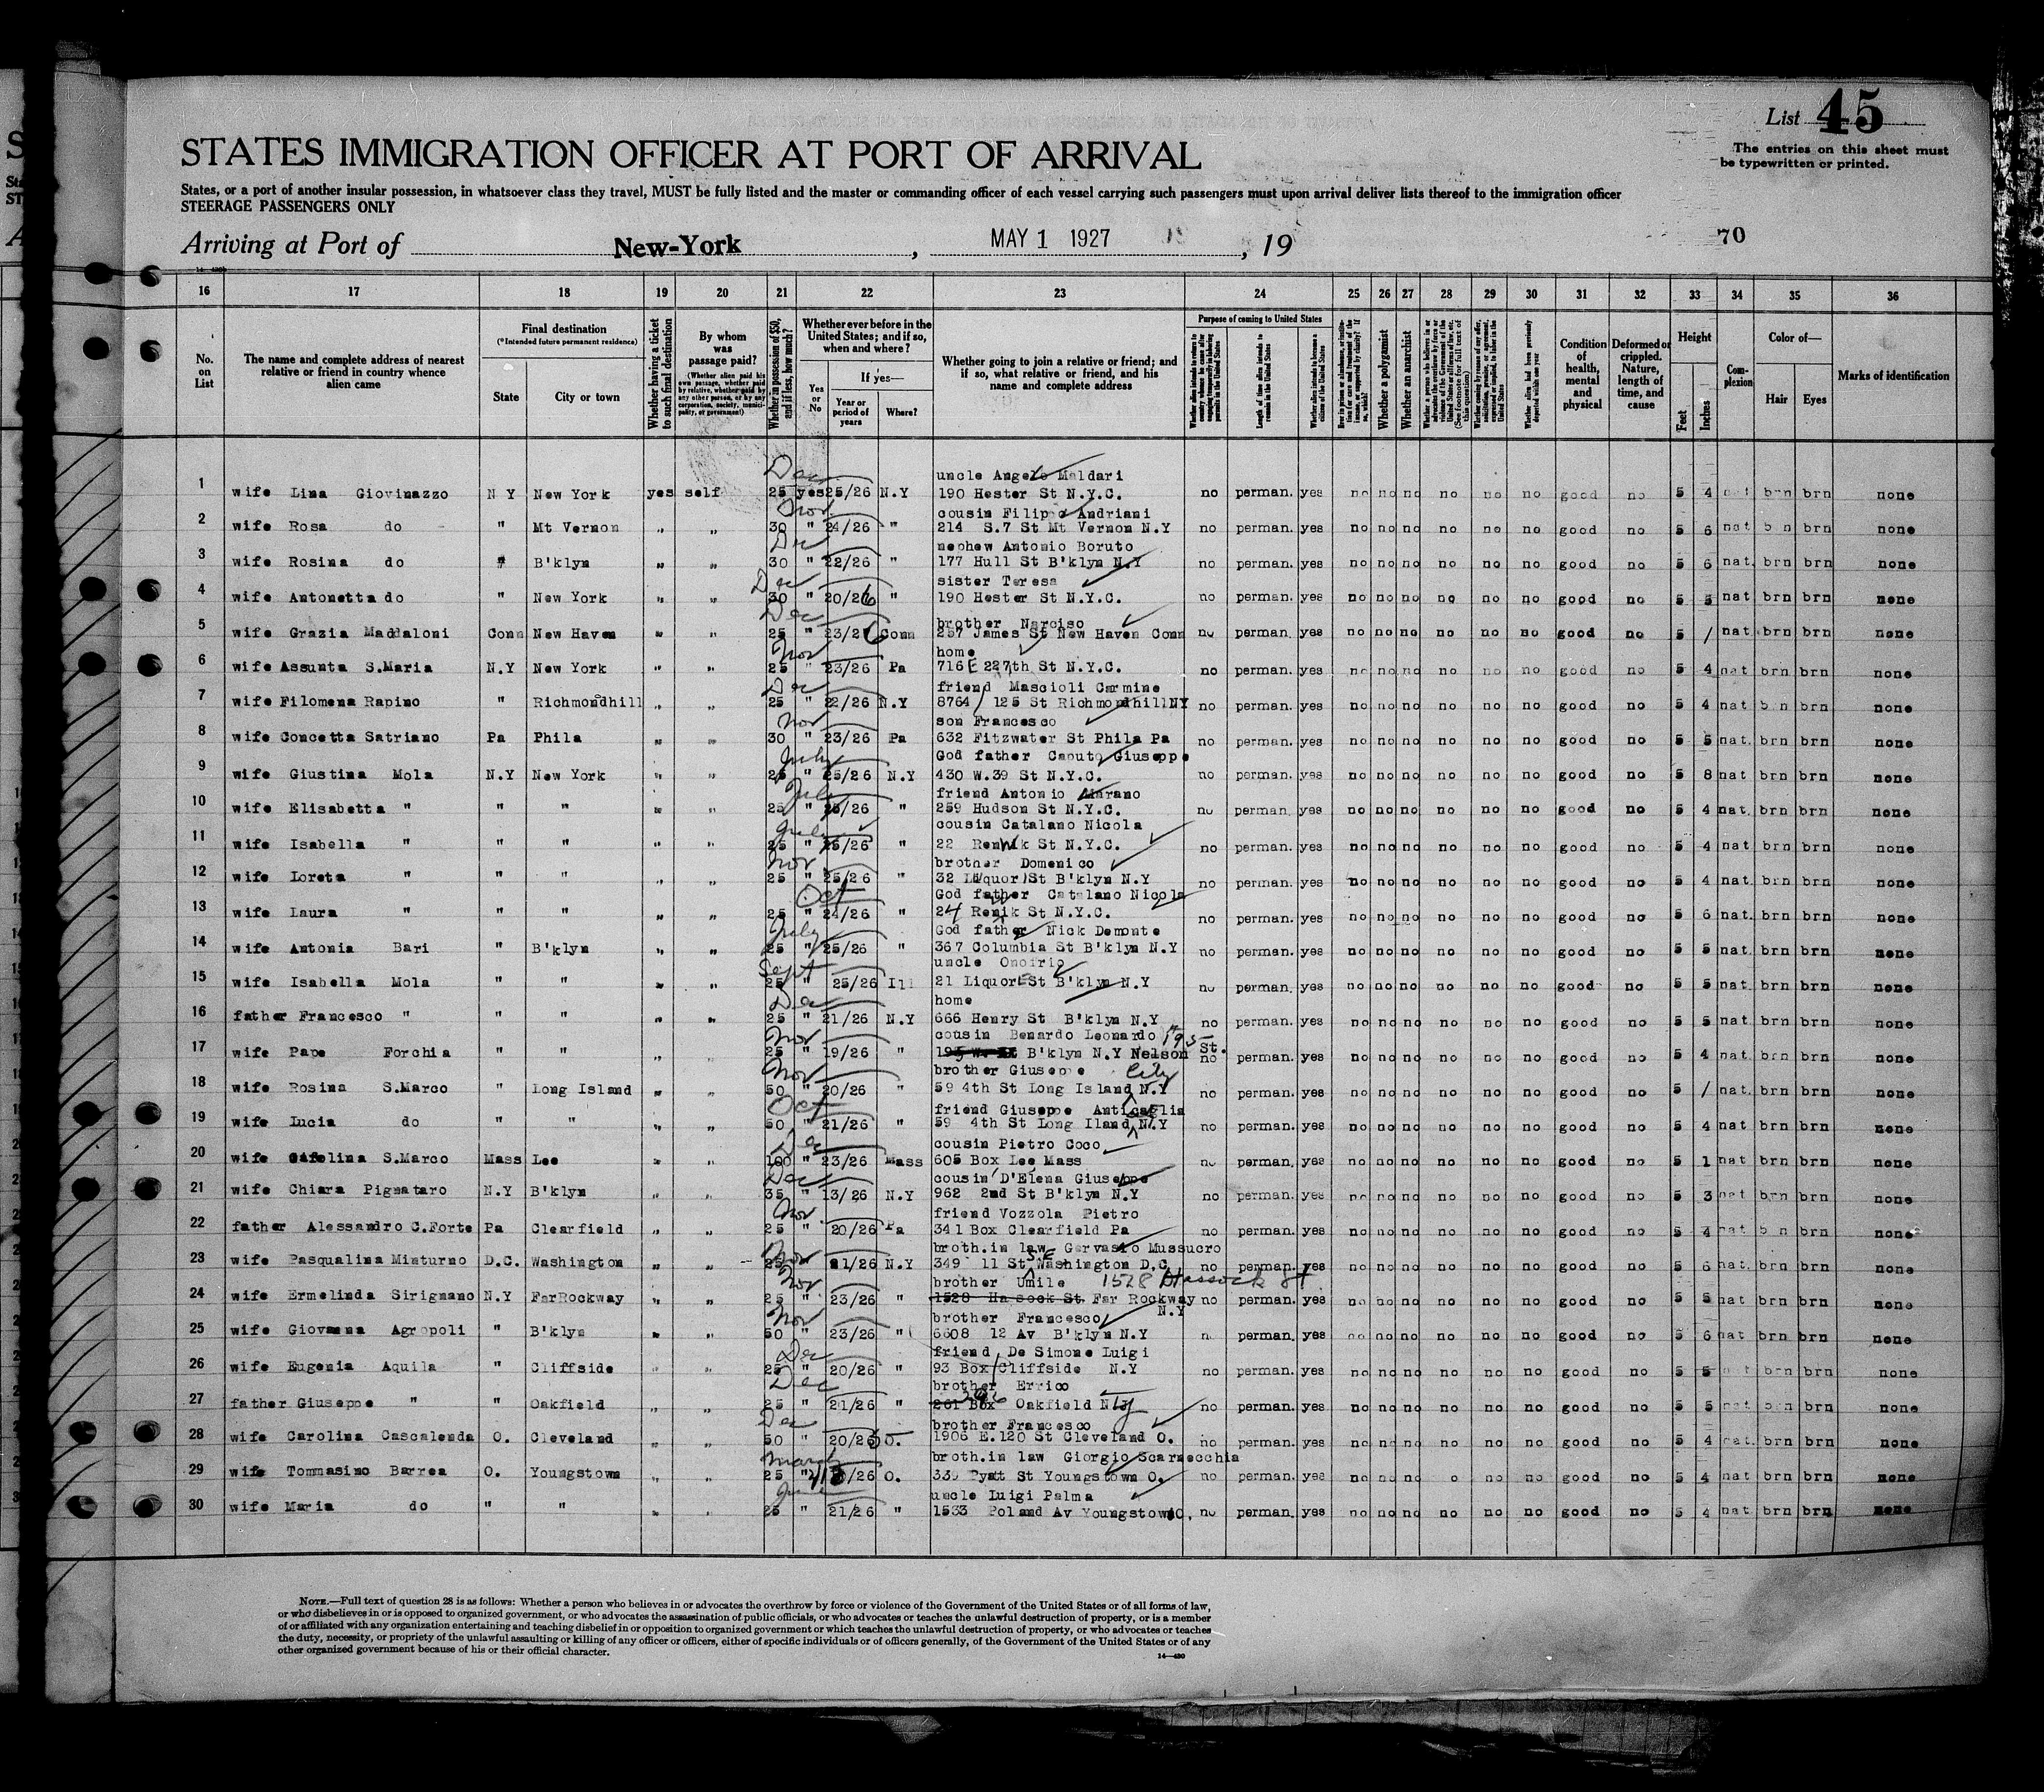 List 45
The entries on this sheet must
be typewritten or printed.
STATES IMMIGRATION OFFICER AT PORT OF ARRIVAL
States, or a port of another insular possession, in whatsoever class they travel, MUST be fully listed and the master or commanding officer of each vessel carrying such passengers must upon arrival deliver lists thereof to the immigration officer
STEERAGE PASSENGERS ONLY
Arriving at Port of New-York, MAY 1 1927, 19
70
16 17 18 19 20 21 22 23 24 25 26 27 28 29 30 31 32 33 34 35 36
No. on List
The name and complete address of nearest relative or friend in country whence alien came
Final destination
(*Intended future permanent residence)
State
City or town
Whether having a ticket to such final destination
By whom was passage paid?
(Whether alien paid his own passage, whether paid by relative, whether paid by any other person, or by any corporation, society, municipality, or government)
Whether in possession of $50, and if less, how much?
Whether ever before in the United States; and if so, when and where?
Yes or No
If yes—
Year or period of years
Where?
Whether going to join a relative or friend; and if so, what relative or friend, and his name and complete address
Purpose of coming to United States
Length of time alien intends to remain in the United States
Whether alien intends to become a citizen of the United States
Whether a polygamist
Whether an anarchist
Condition of health, mental and physical
Deformed or crippled. Nature, length of time, and cause
Height
Feet
Inches
Complexion
Color of—
Hair
Eyes
Marks of identification
Dec uncle Angelo Maldari
1 wife Lina Giovinazzo N Y New York yes self 25 yes 25/26 N.Y 190 Hester St N.Y.C. no perman. yes no no no no no no good no 5 4 nat brn brn none
Nov cousin Filipo Andriani
2 wife Rosa do " Mt Vernon " " 30 " 24/26 " 214 S.7 St Mt Vernon N.Y no perman. yes no no no no no no good no 5 6 nat b n brn none
Dec nephew Antonio Boruto
3 wife Rosina do " B'klyn " " 30 " 22/26 " 177 Hull St B'klyn N.Y no perman. yes no no no no no no good no 5 6 nat. brn brn none
Dec sister Teresa
4 wife Antonetta do " New York " " 30 " 20/26 " 190 Hester St N.Y.C. no perman. yes no no no no no no good no 5 5 nat brn brn none
Dec brother Narciso
5 wife Grazia Maddaloni Conn New Haven " " 25 " 23/26 Conn 257 James St New Haven Conn no perman. yes no no no no no no good no 5 / nat brn brn none
Nov home
6 wife Assunta S.Maria N.Y New York " " 25 " 23/26 Pa 716 E 227th St N.Y.C. no perman. yes no no no no no no good no 5 4 nat brn brn none
Dec friend Mascioli Carmine
7 wife Filomena Rapino " Richmondhill " " 25 " 22/26 N.Y 8764/ 125 St Richmondhill NY no perman. yes no no no no no no good no 5 4 nat b n brn none
Nov son Francesco
8 wife Concetta Satriano Pa Phila " " 30 " 23/26 Pa 632 Fitzwater St Phila Pa no perman. yes no no no no no no good no 5 5 nat. brn brn none
July God father Caputo Giuseppe
9 wife Giustina Mola N.Y New York " " 25 " 25/26 N.Y 430 W.39 St N.Y.C. no perman. yes no no no no no no good no 5 8 nat brn brn none
July friend Antonio Marano
10 wife Elisabetta " " " " " 25 " 25/26 " 259 Hudson St N.Y.C. no perman. yes no no no no no no good no 5 4 nat. brn brn none
July cousin Catalano Nicola
11 wife Isabella " " " " " 25 " 25/26 " 22 St N.Y.C. no perman. yes no no no no no no good no 5 4 nat brn brn none
Nov brother Domenico
12 wife Loreta " " " " " 25 " 25/26 " 32 St B'klyn N.Y no perman. yes no no no no no no good no 5 4 nat. brn brn none
Oct God father Catalano Nicola
13 wife Laura " " " " " 25 " 24/26 " 24 Renik St N.Y.C. no perman. yes no no no no no no good no 5 6 nat. brn brn none
July God father Nick Demonte
14 wife Antonia Bari " B'klyn " " 25 " 25/26 " 367 Columbia St B'klyn N.Y no perman. yes no no no no no no good no 5 5 nat brn brn none
Sept uncle Onofrio
15 wife Isabella Mola " " " " 25 " 25/26 Ill 21 Liquor St B'klyn N.Y no perman. yes no no no no no no good no 5 5 nat. brn brn none
Dec home
16 father Francesco " " " " " 25 " 21/26 N.Y 666 Henry St B'klyn N.Y no perman. yes no no no no no no good no 5 5 nat. brn brn none
Nov cousin Benardo Leonardo 195
17 wife Pape Forchia " " " " 25 " 19/26 " 195 B'klyn N.Y Nelson St. no perman. yes no no no no no no good no 5 4 nat. brn brn none
Nov brother Giuseppe City
18 wife Rosina S.Marco " Long Island " " 50 " 20/26 " 59 4th St Long Island N.Y no perman. yes no no no no no no good no 5 / nat. brn brn none
Oct friend Giuseppe Anticaglia
19 wife Lucia do " " " " 50 " 21/26 " 59 4th St Long Iland N.Y no perman. yes no no no no no no good no 5 4 nat brn brn none
Dec cousin Pietro Coco
20 wife S.Marco Mass Lee " " 100 " 23/26 Mass 605 Box Lee Mass no perman. yes no no no no no no good no 5 1 nat brn brn none
Dec cousin D'Elena Giuseppe
21 wife Chiara Pignataro N.Y B'klyn " " 35 " 13/26 N.Y 962 2nd St B'klyn N.Y no perman. yes no no no no no no good no 5 3 nat brn brn none
Nov friend Vozzola Pietro
22 father Alessandro C.Forte Pa Clearfield " " 25 " 20/26 Pa 341 Box Clearfield Pa no perman. yes no no no no no no good no 5 4 nat b n brn none
Nov broth.in law Gervasio Mussucro
23 wife Pasqualina Minturno D.C. Washington " " 25 " 21/26 N.Y 349 11 St S.E Washington D.C. no perman. yes no no no no no no good no 5 6 nat. brn brn none
Nov brother Umile 1528 Hassock St
24 wife Ermelinda Sirignano N.Y FarRockway " " 25 " 23/26 " 1528 Hasock St. Far Rockway N.Y no perman. yes no no no no no no good no 5 5 nat brn brn none
Nov brother Francesco
25 wife Giovanna Agropoli " B'klyn " " 50 " 23/26 " 6608 12 Av B'klyn N.Y n. perman. yes no no no no no no good no 5 6 nat brn brn none
Dec friend De Simone Luigi
26 wife Eugenia Aquila " Cliffside " " 25 " 20/26 " 93 Box Cliffside N.Y no perman. yes no no no no no no good no 5 5 brn brn none
Dec brother Errico
27 father Giuseppe " " Oakfield " " 25 " 21/26 " 261 Box Oakfield N.Y no perman. yes no no no no no no good no 5 5 nat brn brn none
Dec brother Francesco
28 wife Carolina Cascalenda O. Cleveland " " 50 " 20/26 O. 1906 E.120 St Cleveland O. no perman. yes no no no no no no good no 5 4 nat. brn brn none
March broth.in law Giorgio Scarnecchia
29 wife Tommasino Barrea O. Youngstown " " 25 " /26 O. 339 Pyatt St Youngstown O. no perman. yes no no no o no no good no 5 4 nat brn brn none
June uncle Luigi Palma
30 wife Maria do " " " " 25 " 21/26 " 1533 Poland Av Youngstown O. no perman. yes no no no no no no good no 5 4 nat. brn brn none
NOTE.—Full text of question 28 is as follows: Whether a person who believes in or advocates the overthrow by force or violence of the Government of the United States or of all forms of law,
or who disbelieves in or is opposed to organized government, or who advocates the assassination of public officials, or who advocates or teaches the unlawful destruction of property, or is a member
of or affiliated with any organization entertaining and teaching disbelief in or opposition to organized government or which teaches the unlawful destruction of property, or who advocates or teaches
the duty, necessity, or propriety of the unlawful assaulting or killing of any officer or officers, either of specific individuals or of officers generally, of the Government of the United States or of any
other organized government because of his or their official character.
14—420